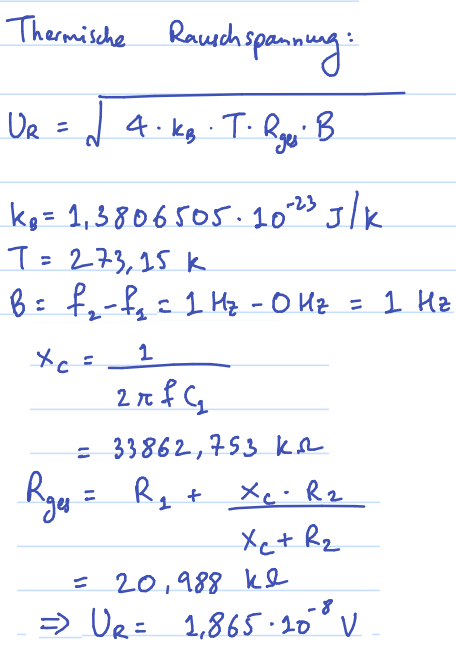 Thermische Rauschspannung:
U_R = √(4 · k_B · T · R_ges · B)
k_B = 1,3806505 · 10^-23 J/K
T = 273,15 K
B = f_2 - f_1 = 1 Hz - 0 Hz = 1 Hz
X_C = 1 / (2 π f C_1)
= 33862,753 kΩ
R_ges = R_1 + (X_C · R_2) / (X_C + R_2)
= 20,988 kΩ
⇒ U_R = 1,865 · 10^-8 V